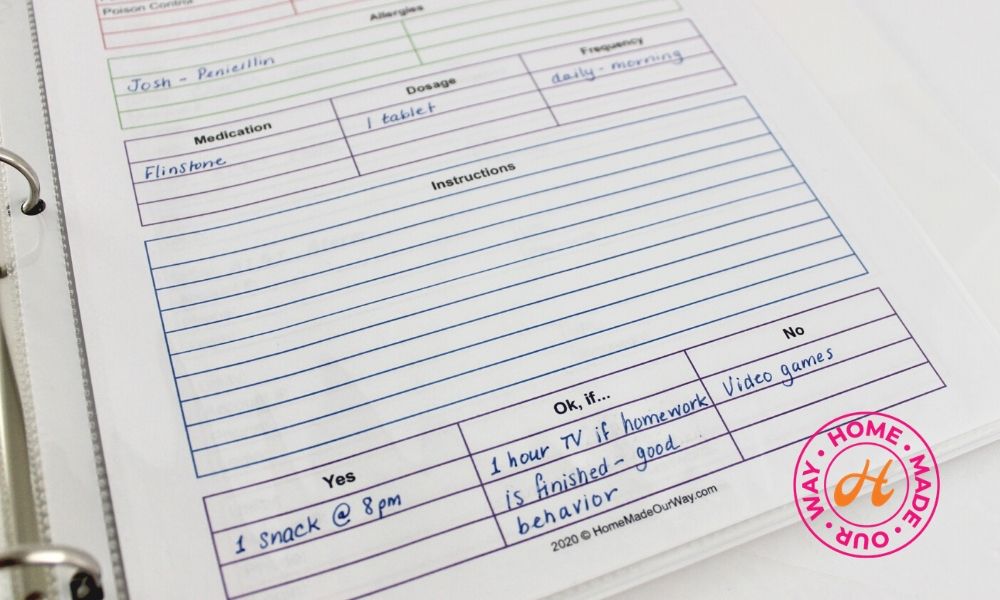 Poison Control
Allergies
Josh - Penicillin
Medication Dosage Frequency
Flinstone 1 tablet daily - morning
Instructions
Yes Ok, if... No
1 snack @ 8pm 1 hour TV if homework Video games
is finished - good
behavior
2020 © HomeMadeOurWay.com
HOME • MADE • OUR • WAY •
H